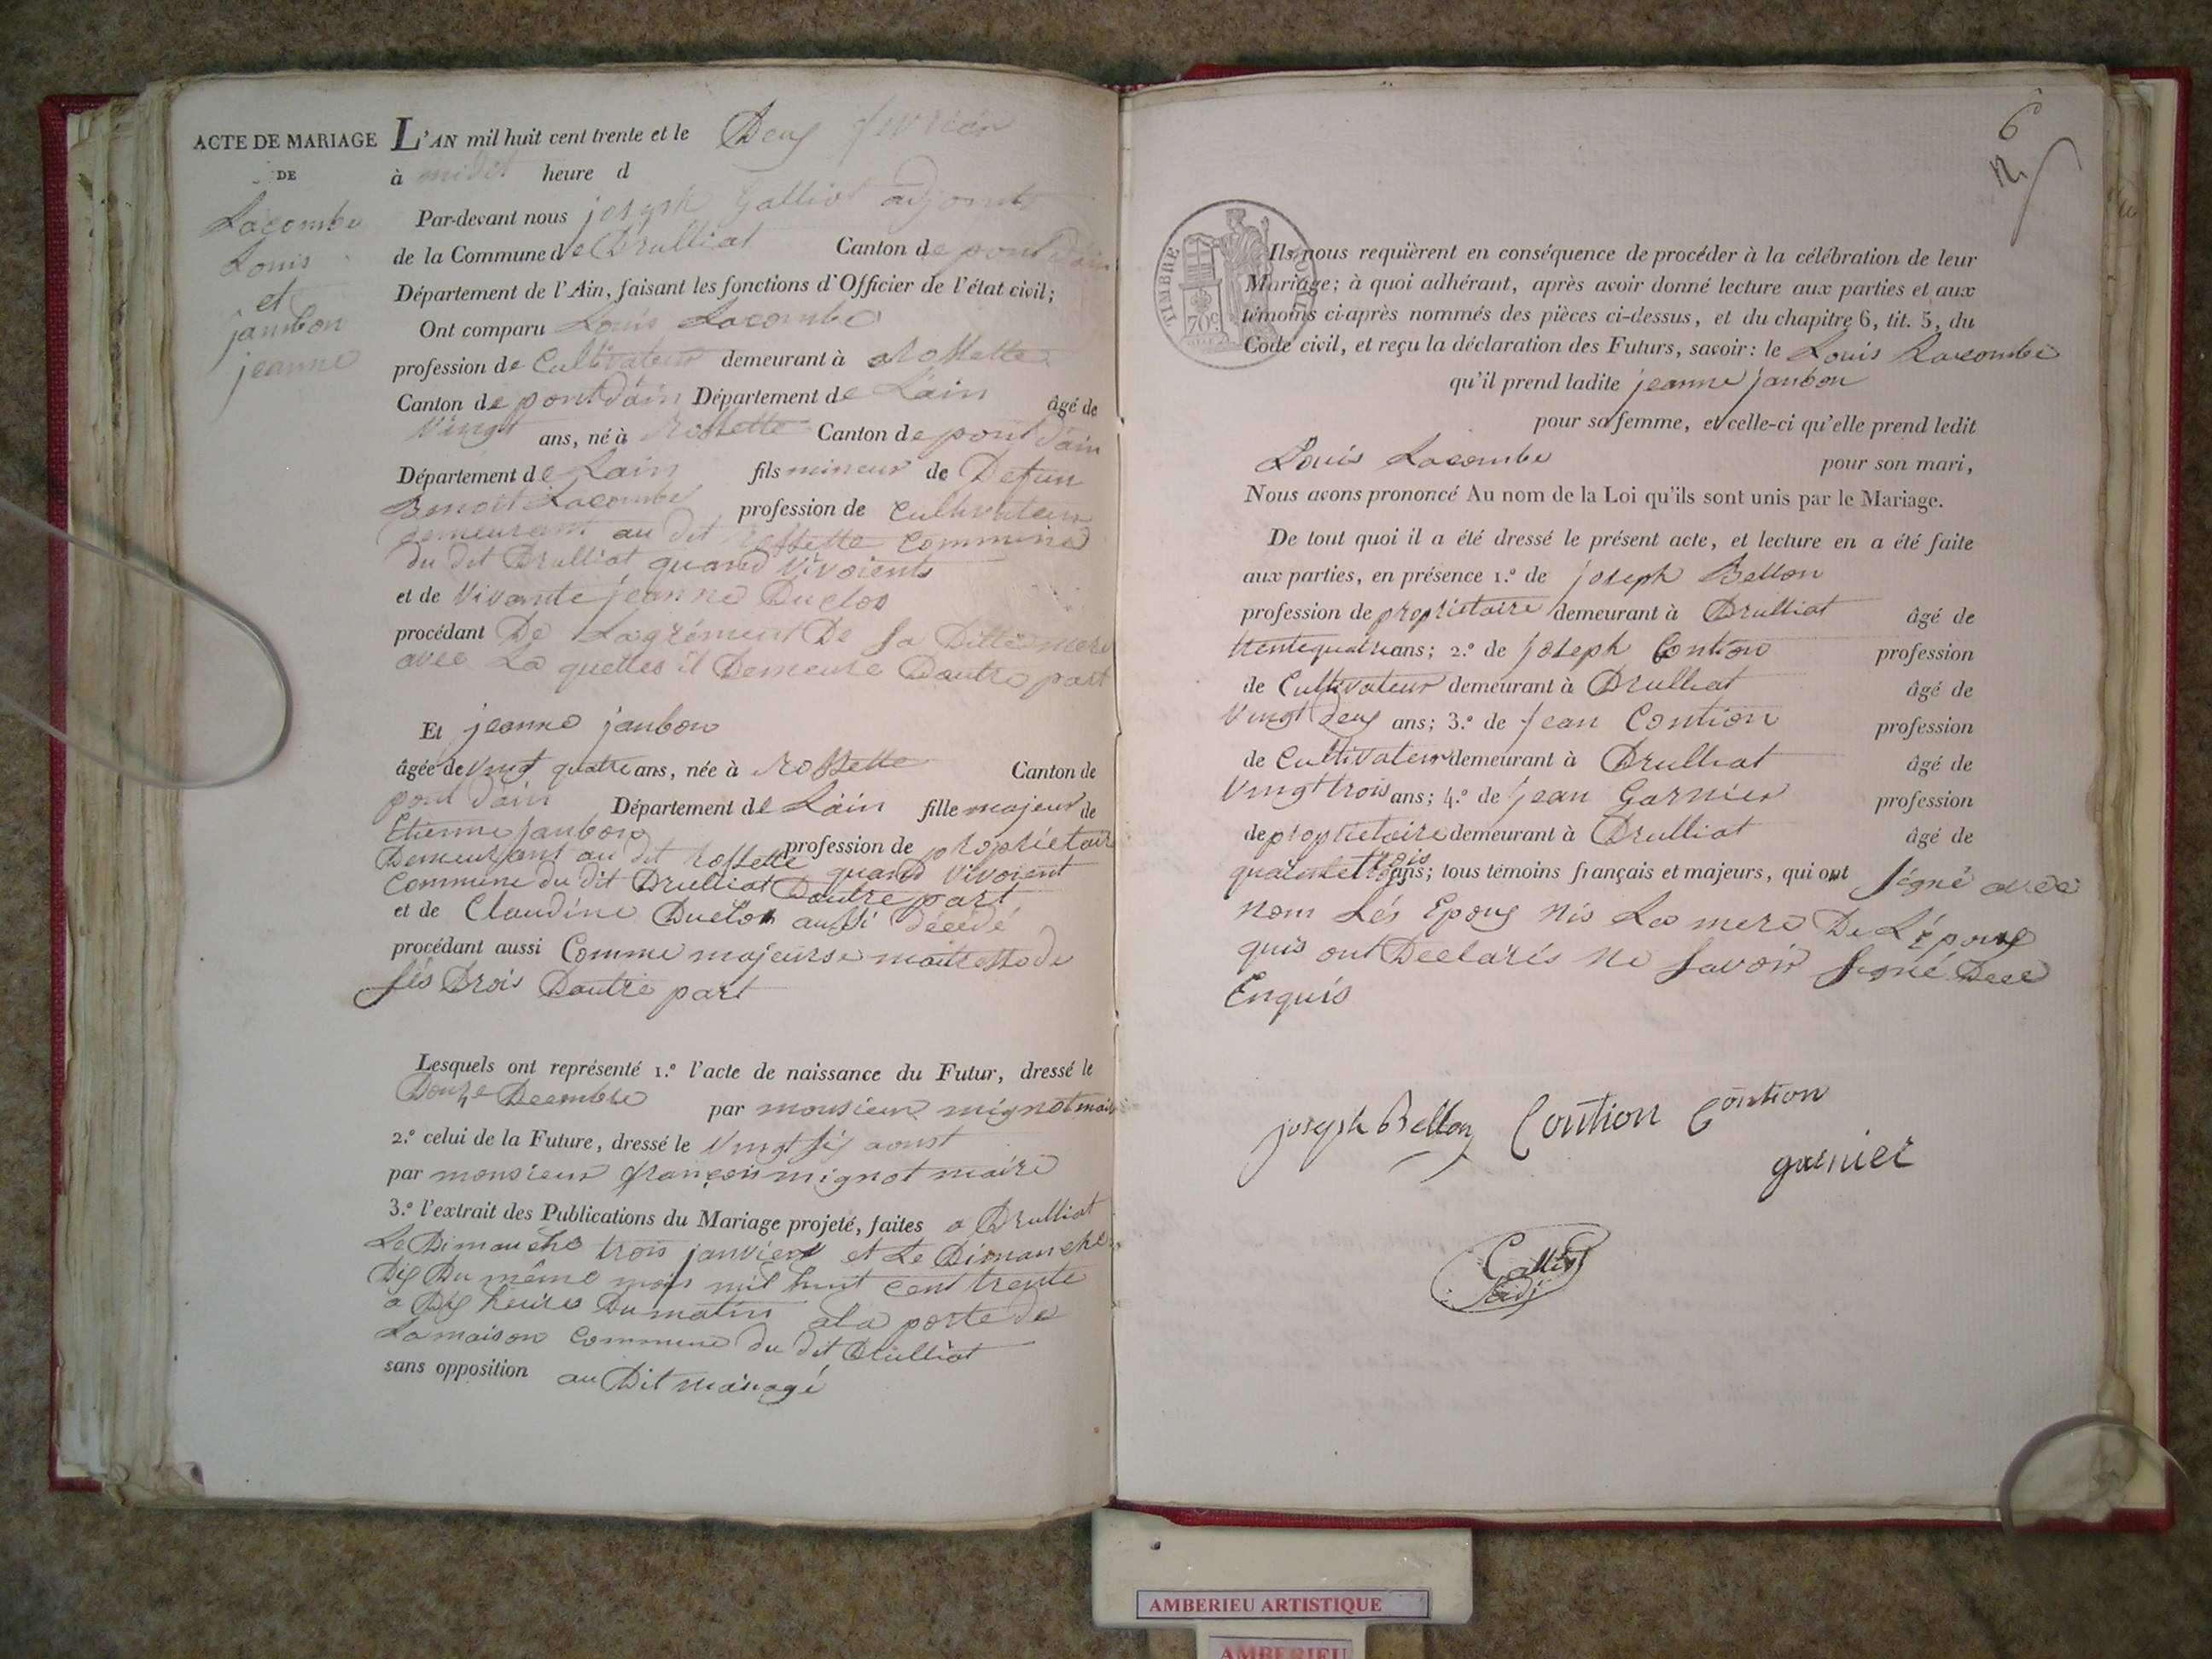 ACTE DE MARIAGE
DE
Lacombe
Louis
et
janbon
jeanne
L'AN mil huit cent trente et le Deux fevrier
à midit heure d
Par-devant nous joseph Galliot adjoint
de la Commune de Drulliat Canton de pont d'ain
Département de l'Ain, faisant les fonctions d'Officier de l'état civil;
Ont comparu Louis Lacombe
profession de Cultivateur demeurant à Rossette
Canton de pont d'ain Département de Lain âgé de
Vingt ans, né à Rossette Canton de pont d'ain
Département de Lain fils mineur de Defun
Benoit Lacombe profession de Cultivateur
demeurant au dit rossette Commune
du dit Drulliat quand vivoients
et de Vivante jeanne Duclos
procédant De Lagrément De sa Ditte mere
avec La quelles il Demeure Dautre part
Et jeanne janbon
âgée de vingt quatre ans, née à Rossette Canton de
pont d'ain Département de Lain fille majeur de
Etienne janbon profession de propriétair
Demeurant au dit rossette quand vivoient
Commune du dit Drulliat Dautre part
et de Claudine Duclos aussi décédé
procédant aussi Comme majeurse maitresse de
sés Drois Dautre part
Lesquels ont représenté 1.º l'acte de naissance du Futur, dressé le
Douze Decembre par monsieur mignot maire
2.º celui de la Future, dressé le Vingt six aoust
par monsieur françois mignot maire
3.º l'extrait des Publications du Mariage projeté, faites a Drulliat
Le Dimanche trois janvier et Le Dimanche
Dix Du même mois mil huit cent trente
a Dix heures Du matin a la porte de
La maison Commune du dit Drulliat
sans opposition au Dit mariage
6
TIMBRE ROYAL
70c
Ils nous requièrent en conséquence de procéder à la célébration de leur
Mariage; à quoi adhérant, après avoir donné lecture aux parties et aux
témoins ci-après nommés des pièces ci-dessus, et du chapitre 6, tit. 5, du
Code civil, et reçu la déclaration des Futurs, savoir: le Louis Lacombe
qu'il prend ladite jeanne janbon
pour sa femme, et celle-ci qu'elle prend ledit
Louis Lacombe pour son mari,
Nous avons prononcé Au nom de la Loi qu'ils sont unis par le Mariage.
De tout quoi il a été dressé le présent acte, et lecture en a été faite
aux parties, en présence 1.º de joseph Bellon
profession de proprietaire demeurant à Drulliat âgé de
trente quatre ans; 2.º de joseph Contion profession
de Cultivateur demeurant à Drulliat âgé de
Vingt deux ans; 3.º de jean Contion profession
de Cultivateur demeurant à Drulliat âgé de
Vingt trois ans; 4.º de jean Garnier profession
de proprietaire demeurant à Drulliat âgé de
quarente trois ans; tous témoins français et majeurs, qui ont signé avec
nom Lés Epoux nis La mere De L'époux
quis ont Declarés ne savoir signé Dece
Enquis
joseph Bellon Contion Contion
garnier
Galliot
adj
AMBERIEU ARTISTIQUE
AMBERIEU